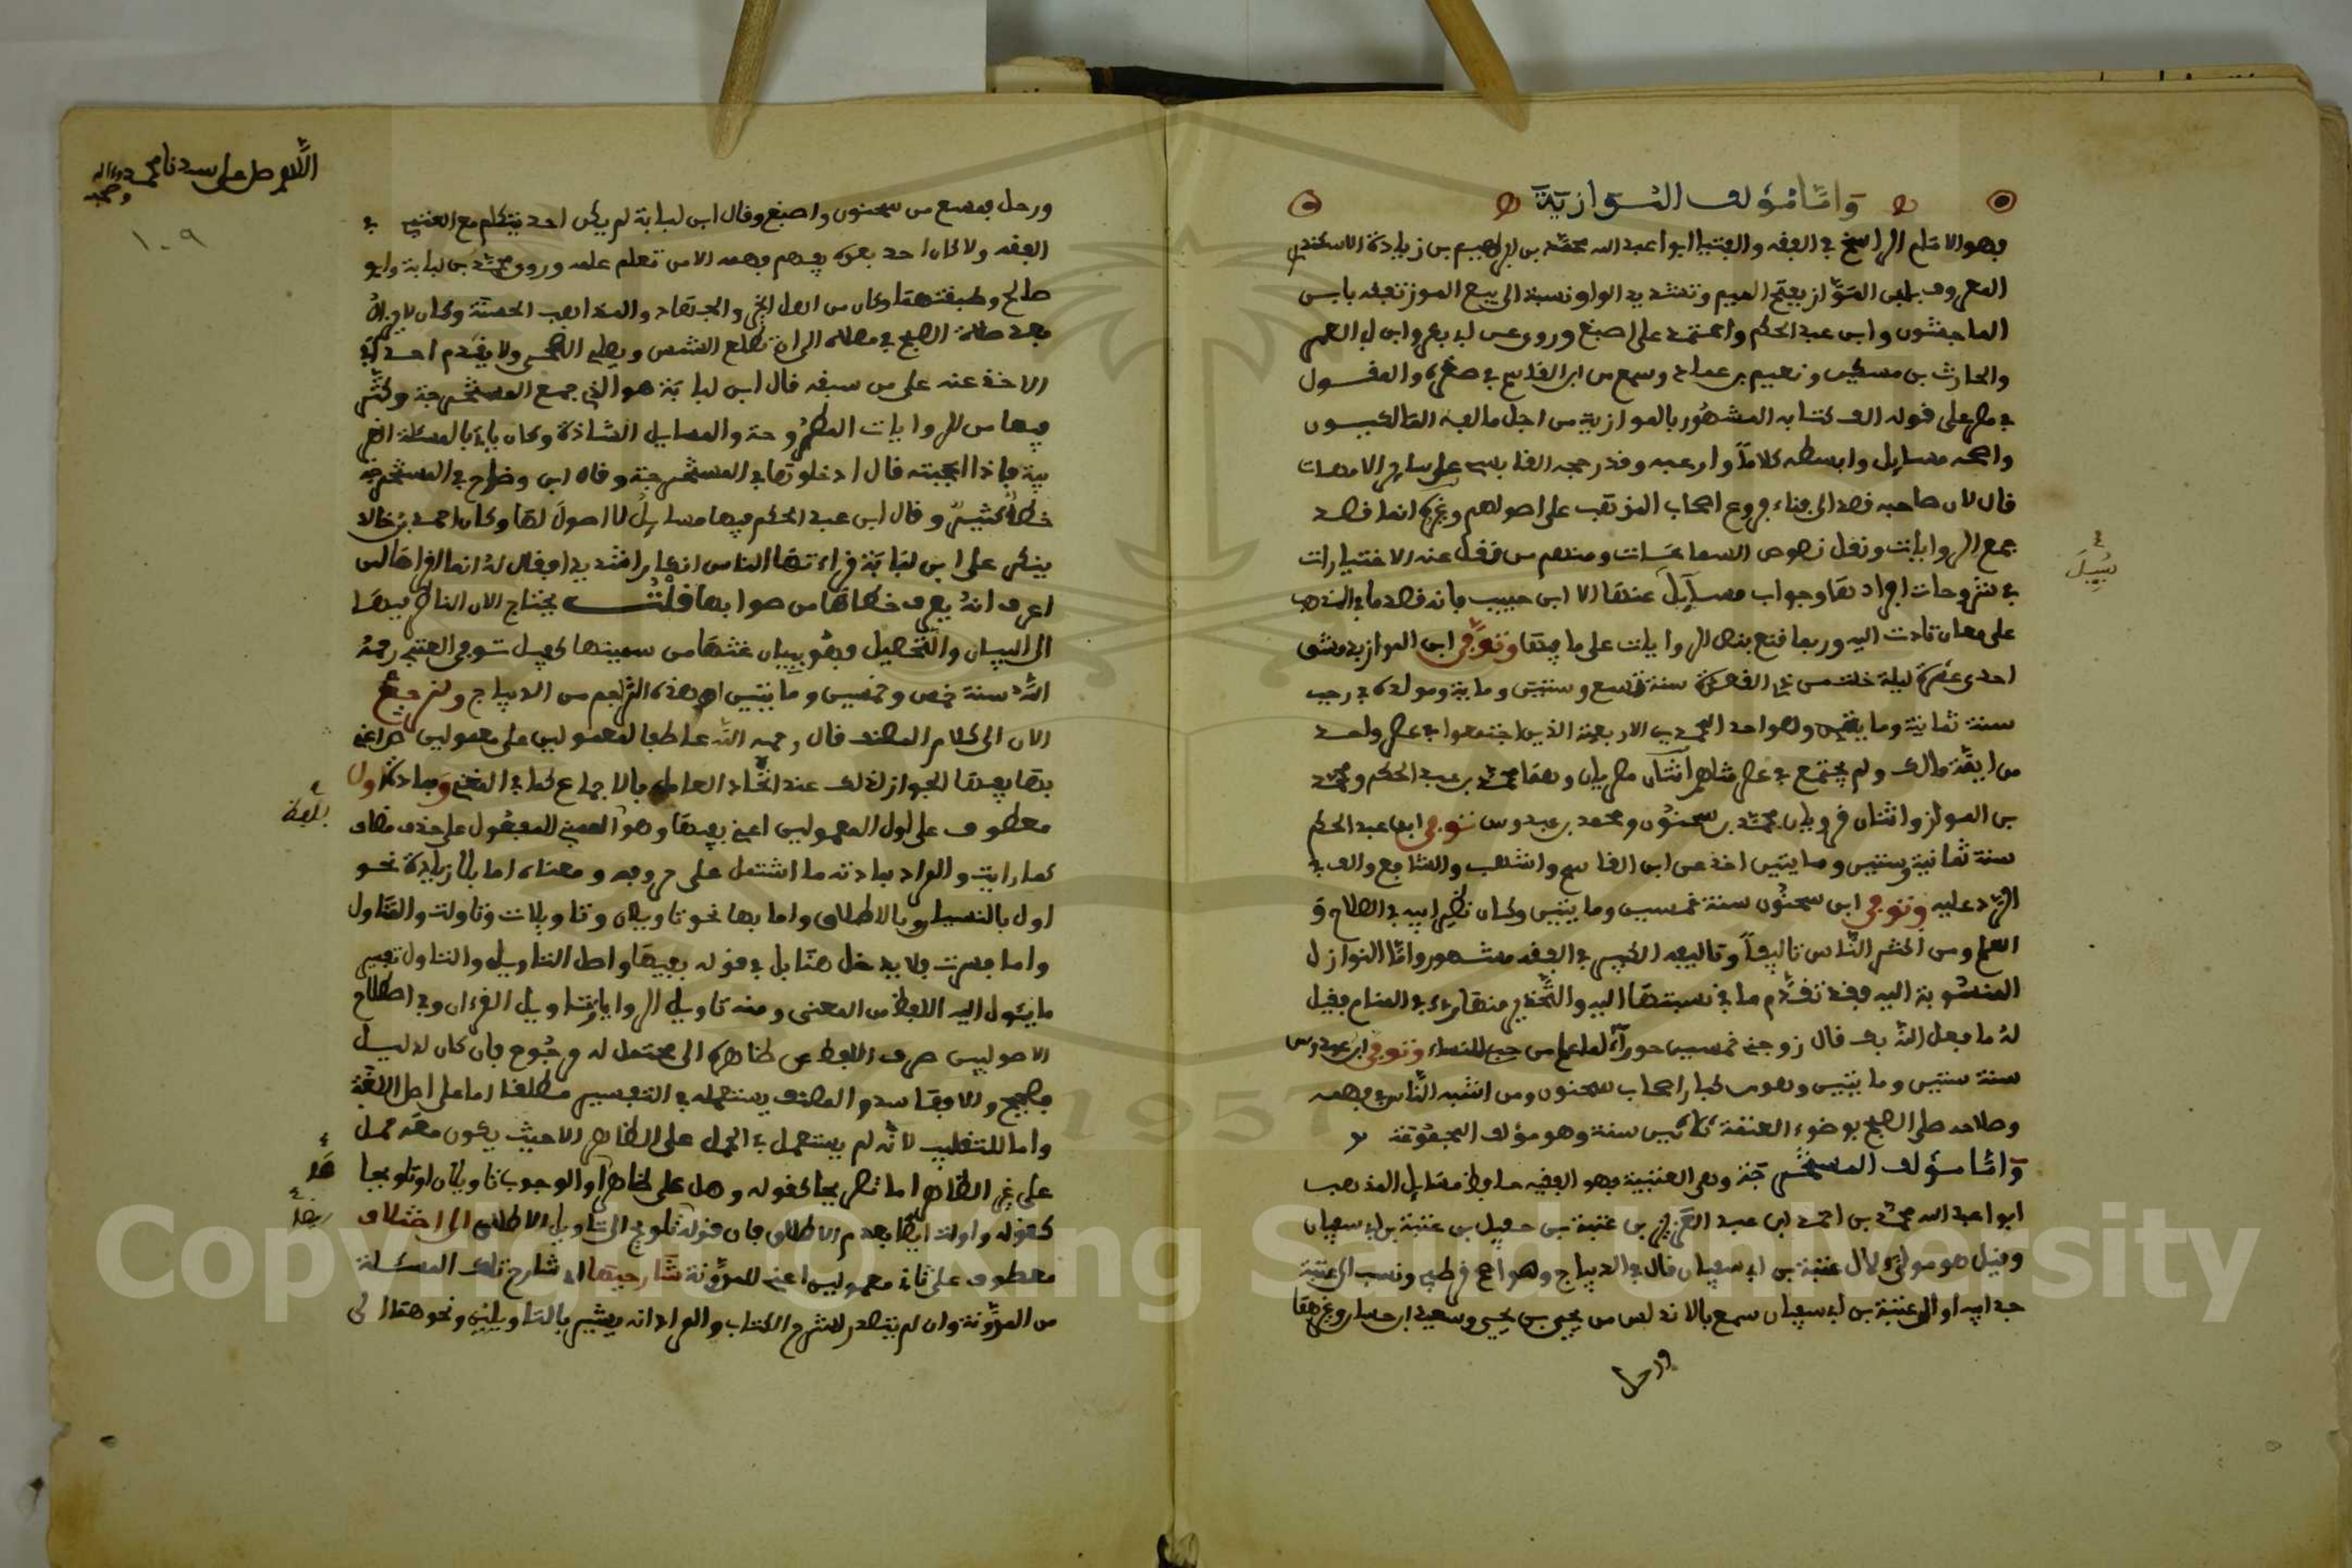 وَامَّا مُؤلف المَوَّازيَّة
فهو الامام الراسخ في الفقه والفتيا ابو عبد الله محمد بن ابراهيم بن زيادة الاسكندري
المعروف بابن المَوَّاز بفتح الميم وتشديد الواو نسبة الى بيع الموز تفقه بابن
الماجشون وابن عبد الحكم واعتمد على اصبغ وروى عن ابي
والحارث بن مسكين ونعيم بن حماد وسمع من ابن القاسم في صغره والمعول
في مصر على قوله الف كتابه المشهور بالموازية من اجل ما الفه المالكيون
واصحه مسايل وابسطه كلاماً واوعبه وقد رجحه القابسي على ساير الامهات
قال لان صاحبه قصد الى بناء فروع اصحاب المذهب على اصولهم وغيره انما قصد
جمع الروايات ونقل نصوص السماعات ومنهم من نقل عنه الاختيارات
في شروحات افرادها وجواب مسايل عنها الا ابن حبيب فانه قصد ما في المذهب
على معان تادت اليه وربما قنع بنص الروايات على ما فيها وتوفي ابن المواز بدمشق
احدى عشرة ليلة خلت من ذي القعدة سنة تسع وستين وماية ومولده في رجب
سنة ثمانية ومايتين وهو احد المحمدين الاربعة الذين اجتمعوا في عصر واحد
من ايمة مالك ولم يجتمع في عصر مثلهم اثنان مصريان وهما محمد بن عبد الحكم ومحمد
بن المواز واثنان قرويان محمد بن سحنون ومحمد بن عبدوس توفي ابن عبد الحكم
سنة ثمانية وستين ومايتين اخذ عن ابن القاسم واشهب والشافعي والف في
الرد عليه وتوفي ابن سحنُون سنة خمسين ومايتين وكان نظير ابيه في الصلاح و
العلم ومن اكثر النَّاس تاليفاً وتاليفه الكبير في الفقه مشهور وامَّا النوازل
المنسُوبة اليه فقد تقدَّم ما في نسبتها اليه والتَّحذير منها رءي في المنام فقيل
لهُ ما فعل الله بك قال زوجني خمسين حوراء لما علم من حبي للنساء وتوفي ابن عبدوس
سنة ستين ومايتين وهو من كبار اصحاب سحنون ومن اشبه النَّاس به في فهمه
وصلاحه صلى الصبح بوضوء العتمة ثلاثين سنة وهو مؤلف المجمُوعة
وَامَّا مؤلف المستخرجَة وهي العتبية فهو الفقيه حافظ مسَايل المذهب
ابو عبد الله محمد بن احمد بن عبد العَزيز بن عتبة بن حميل بن عتبة بن ابي سفيان
وقيل هو مولىً لال عتبة بن ابي سفيان قال في الديباج وهو اصح قرطبي ونسب الى عتبة
جد ابيه او الى عتبة بن ابي سفيان سمع بالاندلس من يحيى بن يحيى وسعيد بن حسان وغيرهما
ورحل
اللَّهم صل على سيدنا محمد واله وصحبه
١٠٩
ورحل فسمع من سحنون واصبغ وقال ابن لبابة لم يكن احد يتكلم مع العتبي في
الفقه ولا كان احد بعده يفهم فهمه الا من تعلم عليه وروى محمد بن لبابة وابو
صالح وطبقتهما وكان من اهل الخير والجهاد والمذاهب الحسنة وكان لا يزال
بعد صلاة الصبح في مصلاه الى ان تطلع الشمس ويصلي الضحى ولا يقدم احد في
الاخذ عنه على من سبقه قال ابن لبابة هو الذي جمع المستخرجة وكثَّر
فيها من الروايات المطرُوحة والمسايل الشاذة وكان ياتى بالمسئلة الغر
يبة فاذا اعجبته قال ادخلوها في المستخرجة وقال ابن وضاح في المستخرجة
خطأٌ كثيرٌ وقال ابن عبد الحكم فيها مسايلُ لا اصولَ لها وكان احمد بن خالد
ينكر على ابن لبَابة قراءتها الناس انكارا شديدا فقال لهُ انما اقراها لمن
اعرف انهُ يعرف خطاها من صوابها قلتُ يحتاج الان الناظر فيها
الى البيان والتَّحصيل فهُو يبيان غثها من سمينها كفيل توفي العتبي رحمهُ
اللَّه سنة خمس وخمسين ومايتين اه هذه التراجم من الديباج ولنرجع
الان الى كلام المصنف قال رحمه الله عاطفا لمعمولين على معمولين
معطوف على اول المعمولين اعني بفيها وهو المعنى للمفعول على حذف مضاف
كما رايت والمراد بمادته ما اشتمل على حروفه ومعناه اما بلا زيادة نحو
اول بالنسبة وبالاطلاق واما بها نحو تاويلان وتاويلات وتاولت والتَّاول
واما فسرت فلا يدخل هنا بل في قوله بفيها واصل التاويل والتاول تفسير
ما يئول اليه اللفظ من المعنى ومنه تاويل الروايا وتاويل القرءان وفي اصطلاح
الاصوليين صرف اللفظ عن ظاهره الى محتمل له مرجُوح فان كان لدليل
فصحيح والا ففاسد والمصنف يستعمله في التفسير مطلقا اما على اصل اللغة
واما للتغليب لانَّه لم يستعمل في الحمل على الظاهر الا حيث يكون معَه حمل
على غير الظاهر اما تصريحا كقوله وهل على ظاهره او الوجوب تاويلان او تلويحا
كقوله واولت ايضا بعدم الاطلاق فان قولَه تلويح الى تاويل الاطلاق الى اختلاف
معطوف على ثاني معمولين اعني للمدوَّنة شَارحيها اي شارح تلك المسئلة
من المدوَّنة وان لم يتصدر لشرح الكتاب والمراد انه يشير بالتاويلين ونحوهما الى